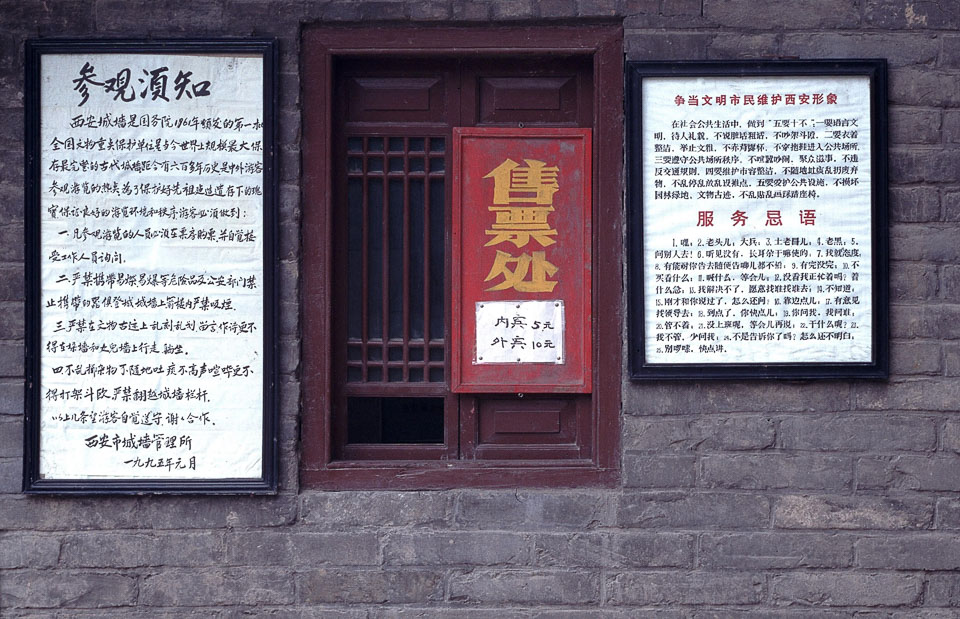 参观须知
西安城墙是国务院1961年颁发的第一批
全国文物重点保护单位是当今世界上规模最大保
存最完整的古代城墙距今有六百多年历史是中外游客
参观游览的热点为了保护好先祖建造遗存下的瑰
宝保证良好的游览环境和秩序游客必须做到：
一．凡参观游览的人员必须在票房购票并自觉接
受工作人员询问．
二．严禁携带易燃易爆等危险品及公安部门禁
止携带的器俱登城城墙上箭楼内严禁吸烟．
三．严禁在文物古迹上乱刻乱划留言作诗更不
得在垛墙和女儿墙上行走
四．不乱抛杂物不随地吐痰不高声喧哗更不
得打架斗殴严禁翻越城墙栏杆．
以上几条望游客自觉遵守．谢谢合作．
西安市城墙管理所
一九九五年元月
售票处
内宾 5元
外宾 10元
争当文明市民维护西安形象
在社会公共生活中，做到“五要十不”一要语言文
明，待人礼貌，不说脏话粗话，不吵架斗殴，二要衣着
整洁，举止文雅，不赤背露怀，不穿拖鞋进入公共场所，
三要遵守公共场所秩序，不喧嚣吵闹，聚众滋事，不违
反交通规则，四要维护市容整洁，不随地吐痰乱扔废弃
物，不乱停乱放乱设摊点，五要爱护公共设施，不损坏
园林绿地、文物古迹，不乱贴乱画踩踏座椅。
服务忌语
1．嘿；2．老头儿，大兵；3．土老冒儿；4．老黑；5．
问别人去！6．听见没有，长耳朵干嘛使的；7．我就态度
8．有能耐你告去随便告哪儿都不怕；9．有完没完；10．不
买看什么；11．喊什么，等会儿；12．没看我正忙着吗，着
什么急；13．我解决不了，愿意找谁找谁去；14．不知道；
15．刚才和你说过了，怎么还问；16．靠边点儿；17．有意见
找领导去；18．到点了，你快点儿；19．你问我，我问谁；
20．管不着；21．没上班呢，等会儿再说；22．干什么呢？23．
我不管，少问我；24．不是告诉你了吗？怎么还不明白；
25．别啰嗦，快点讲．